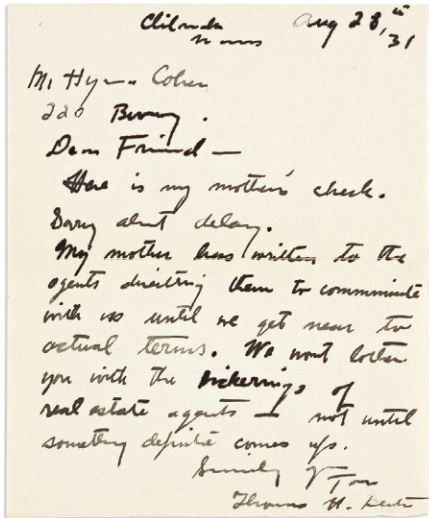 Aug 28, th
31
Mass
Mr Hyman Cohen
220
Dear Friend —
Here is my mother's check.
Sorry about delay.
My mother has written to the
agents directing them to communicate
with us until we get near to
actual terms. We wont bother
you with the bickerings of
real estate agents — not until
something definite comes up.
Sincerely
Thomas H.